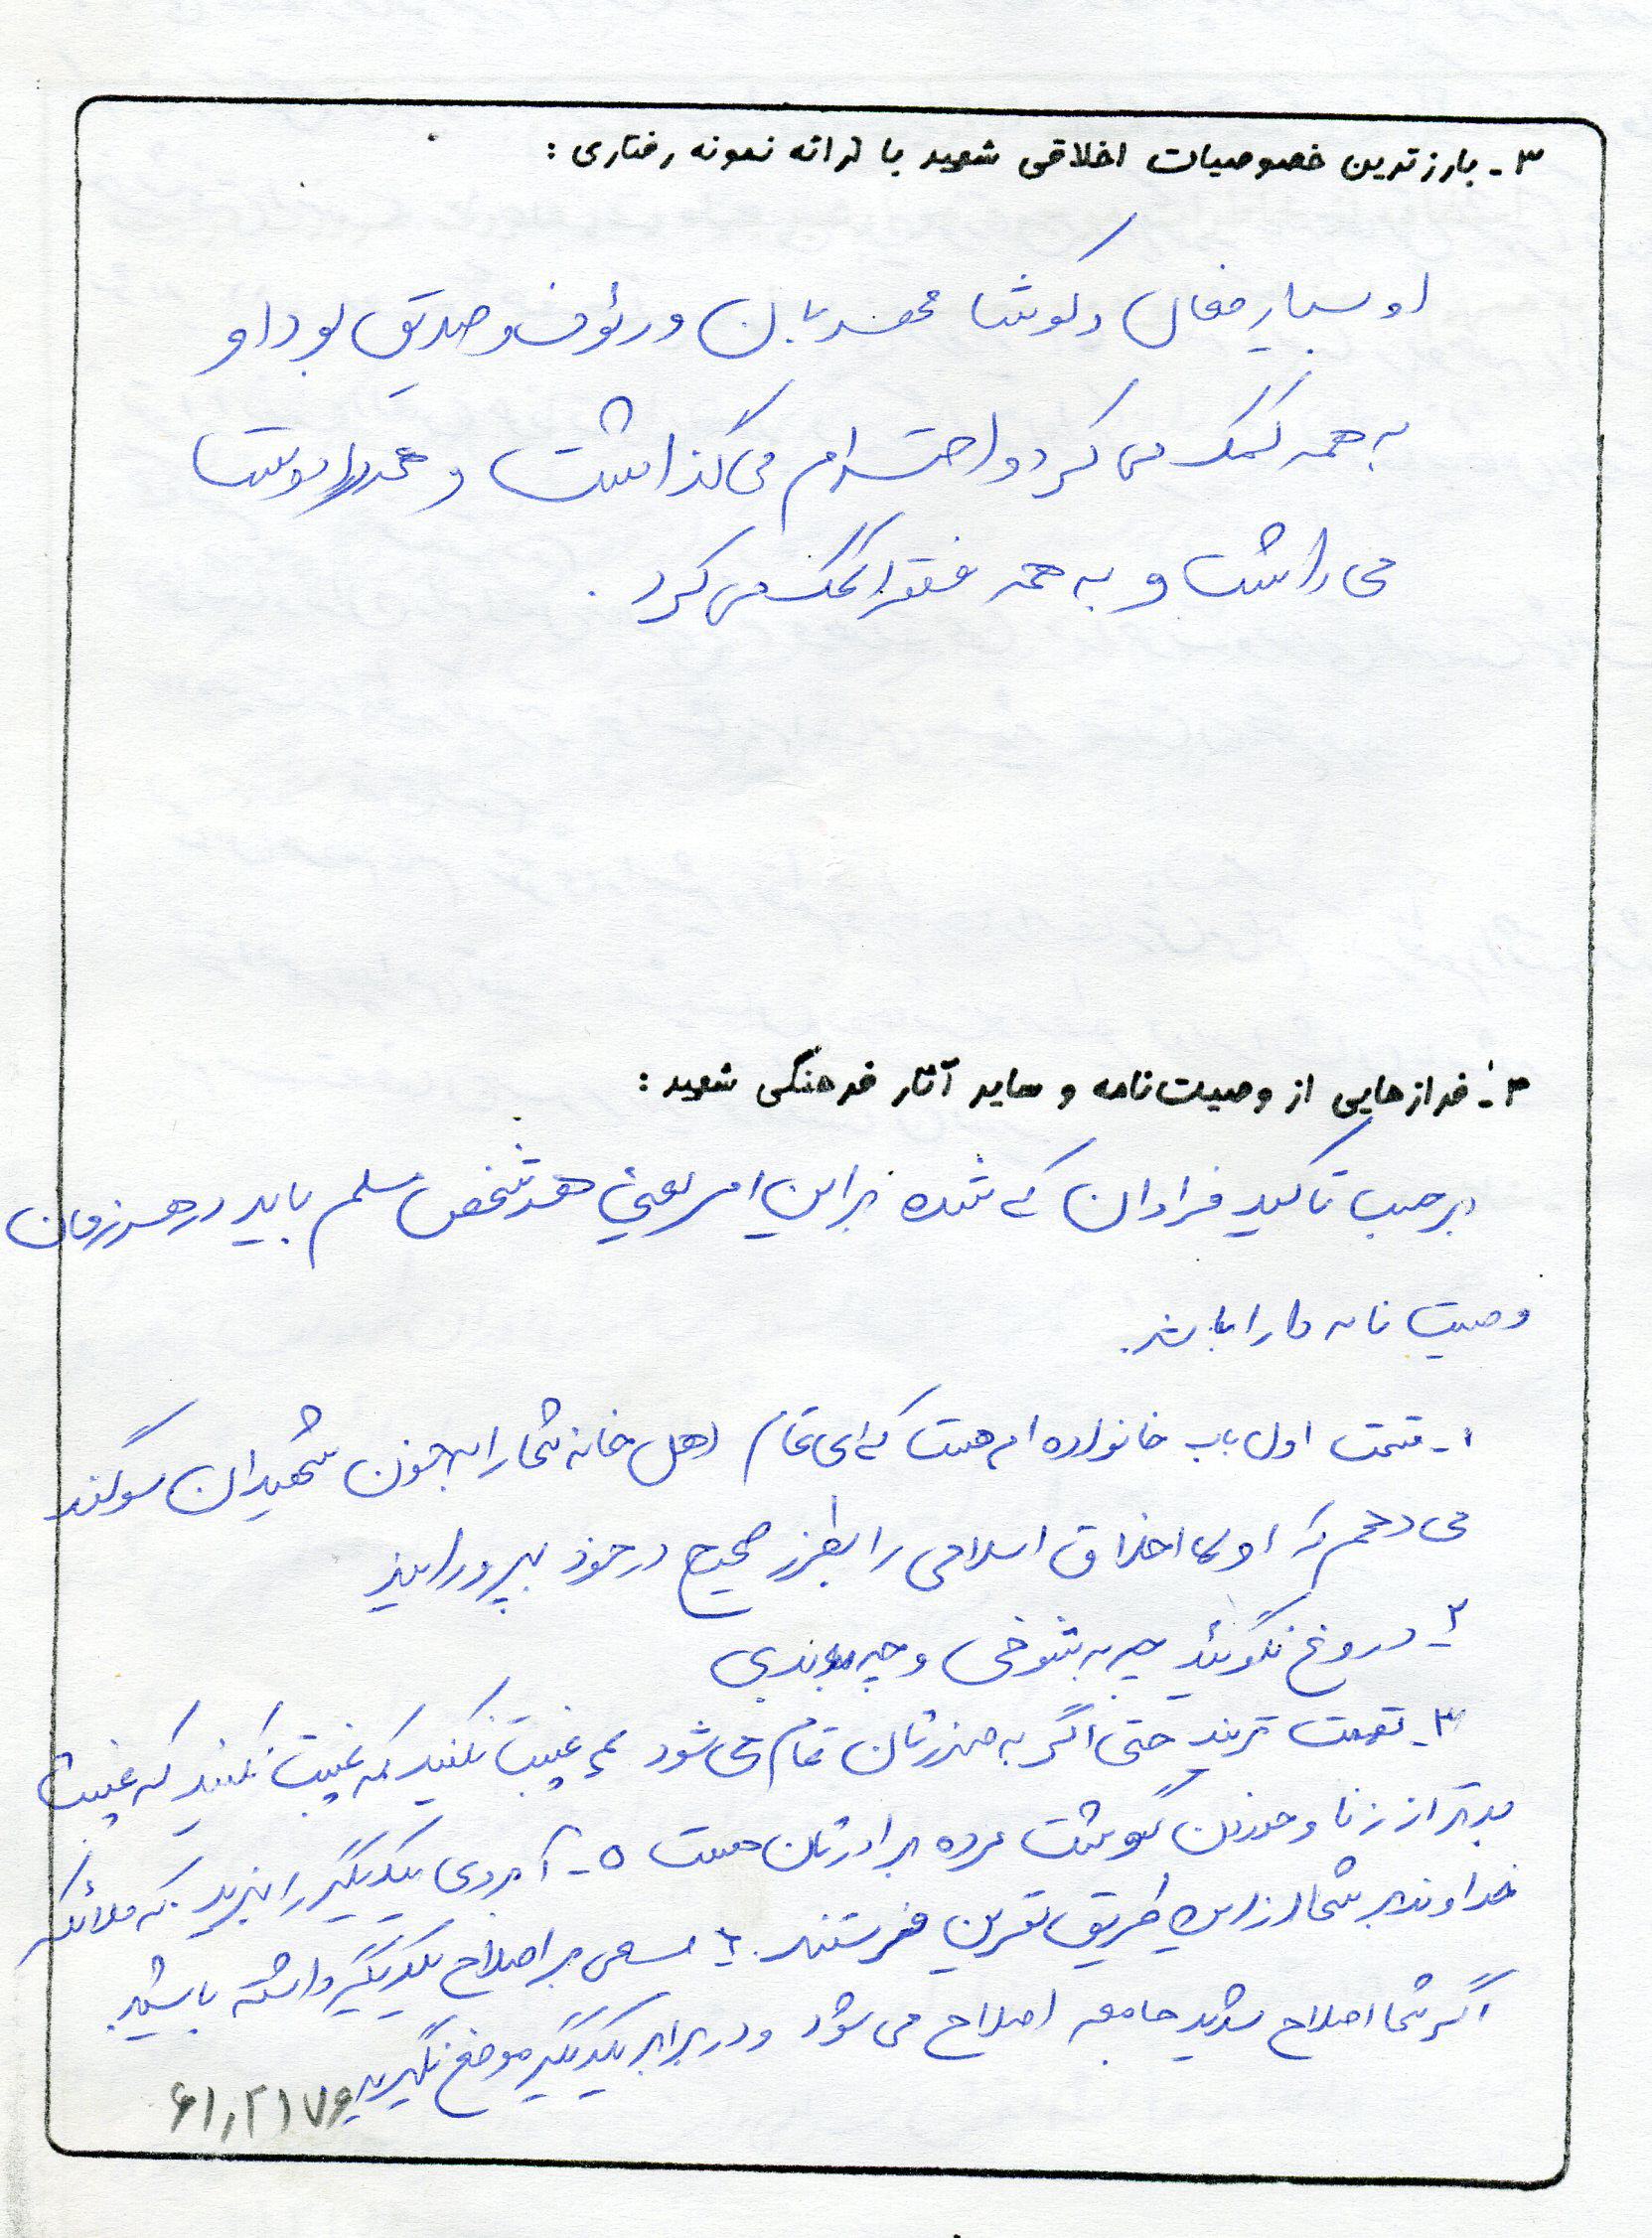 ۳- بارزترین خصوصیات اخلاقی شهید با ارائه نمونه رفتاری :
او بسیار فعال و کوشا مهربان و رئوف و صدیق بود او
به همه کمک می کرد و احترام می گذاشت و همه را دوست
می داشت و به همه فقرا کمک می کرد .
۴- فرازهایی از وصیت‌نامه و سایر آثار فرهنگی شهید :
بر حسب تاکید فراوان که شده بر این امر یعنی هر شخص مسلم باید در هر زمان
وصیت نامه دارا باشد.
۱- قسمت اول باب خانواده ام هست که ای تمام اهل خانه شما را به خون شهیدان سوگند
می دهم که اولا اخلاق اسلامی را بطرز صحیح در خود بپرورانید
۲- دروغ نگوئید چه به شوخی و چه به جدی
۳- تهمت نزنید حتی اگر به ضررتان تمام می شود ۴- غیبت نکنید که غیبت نکنید که غیبت
بدتر از زنا و خوردن گوشت مرده برادرتان هست ۵- آبروی یکدیگر را نبرید که ملائکه
خداوند بر شما از این طریق نفرین فرستند. ۶- سعی بر اصلاح یکدیگر داشته باشید
اگر شما اصلاح شدید جامعه اصلاح می شود و در برابر یکدیگر موضع نگیرید
۶۱۰۲۱۷۶